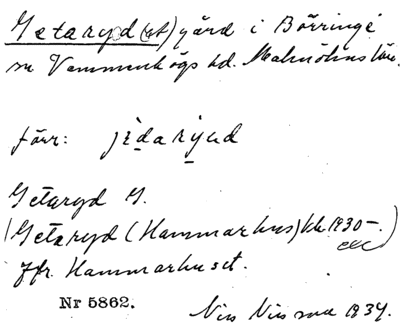 Getaryd (et) gård i Börringe
sn Vemmenhögs hd. Malmöhus län.
förr: jèdarýud
Getaryd G.
(Getaryd (Hammarhus) kbr 1930-)
Jfr. Hammarhuset.
Nr 5862.
Nils 1934.